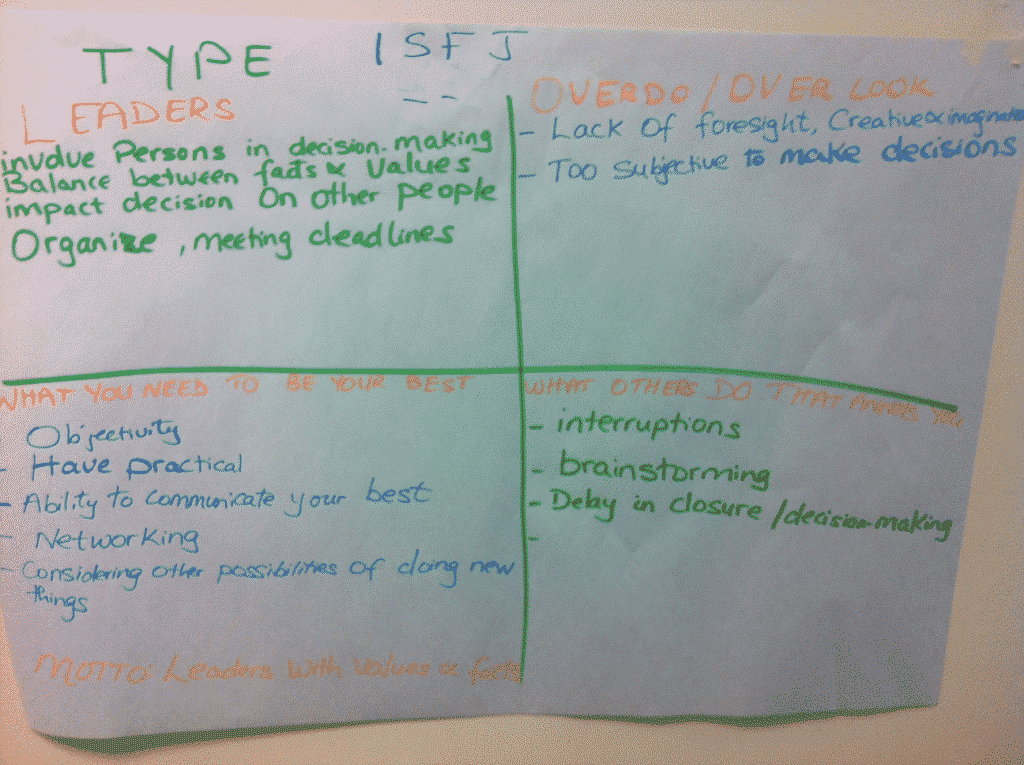 TYPE ISFJ
LEADERS
invovlue Persons in decision-making
Balance between facts & Values
impact decision On other people
Organize, meeting deadlines
OVERDO / OVER LOOK
- Lack Of foresight, Creative &
- Too Subjective to make decisions
WHAT YOU NEED TO BE YOUR BEST
Objectivity
- Have practical
- Ability to communicate your best
- Networking
- Considering other possibilities of doing new
things
MOTTO Leaders With Values & facts
WHAT OTHERS DO THAT ANGERS YOU
- interruptions
- brainstorming
- Delay in closure / decision-making
-